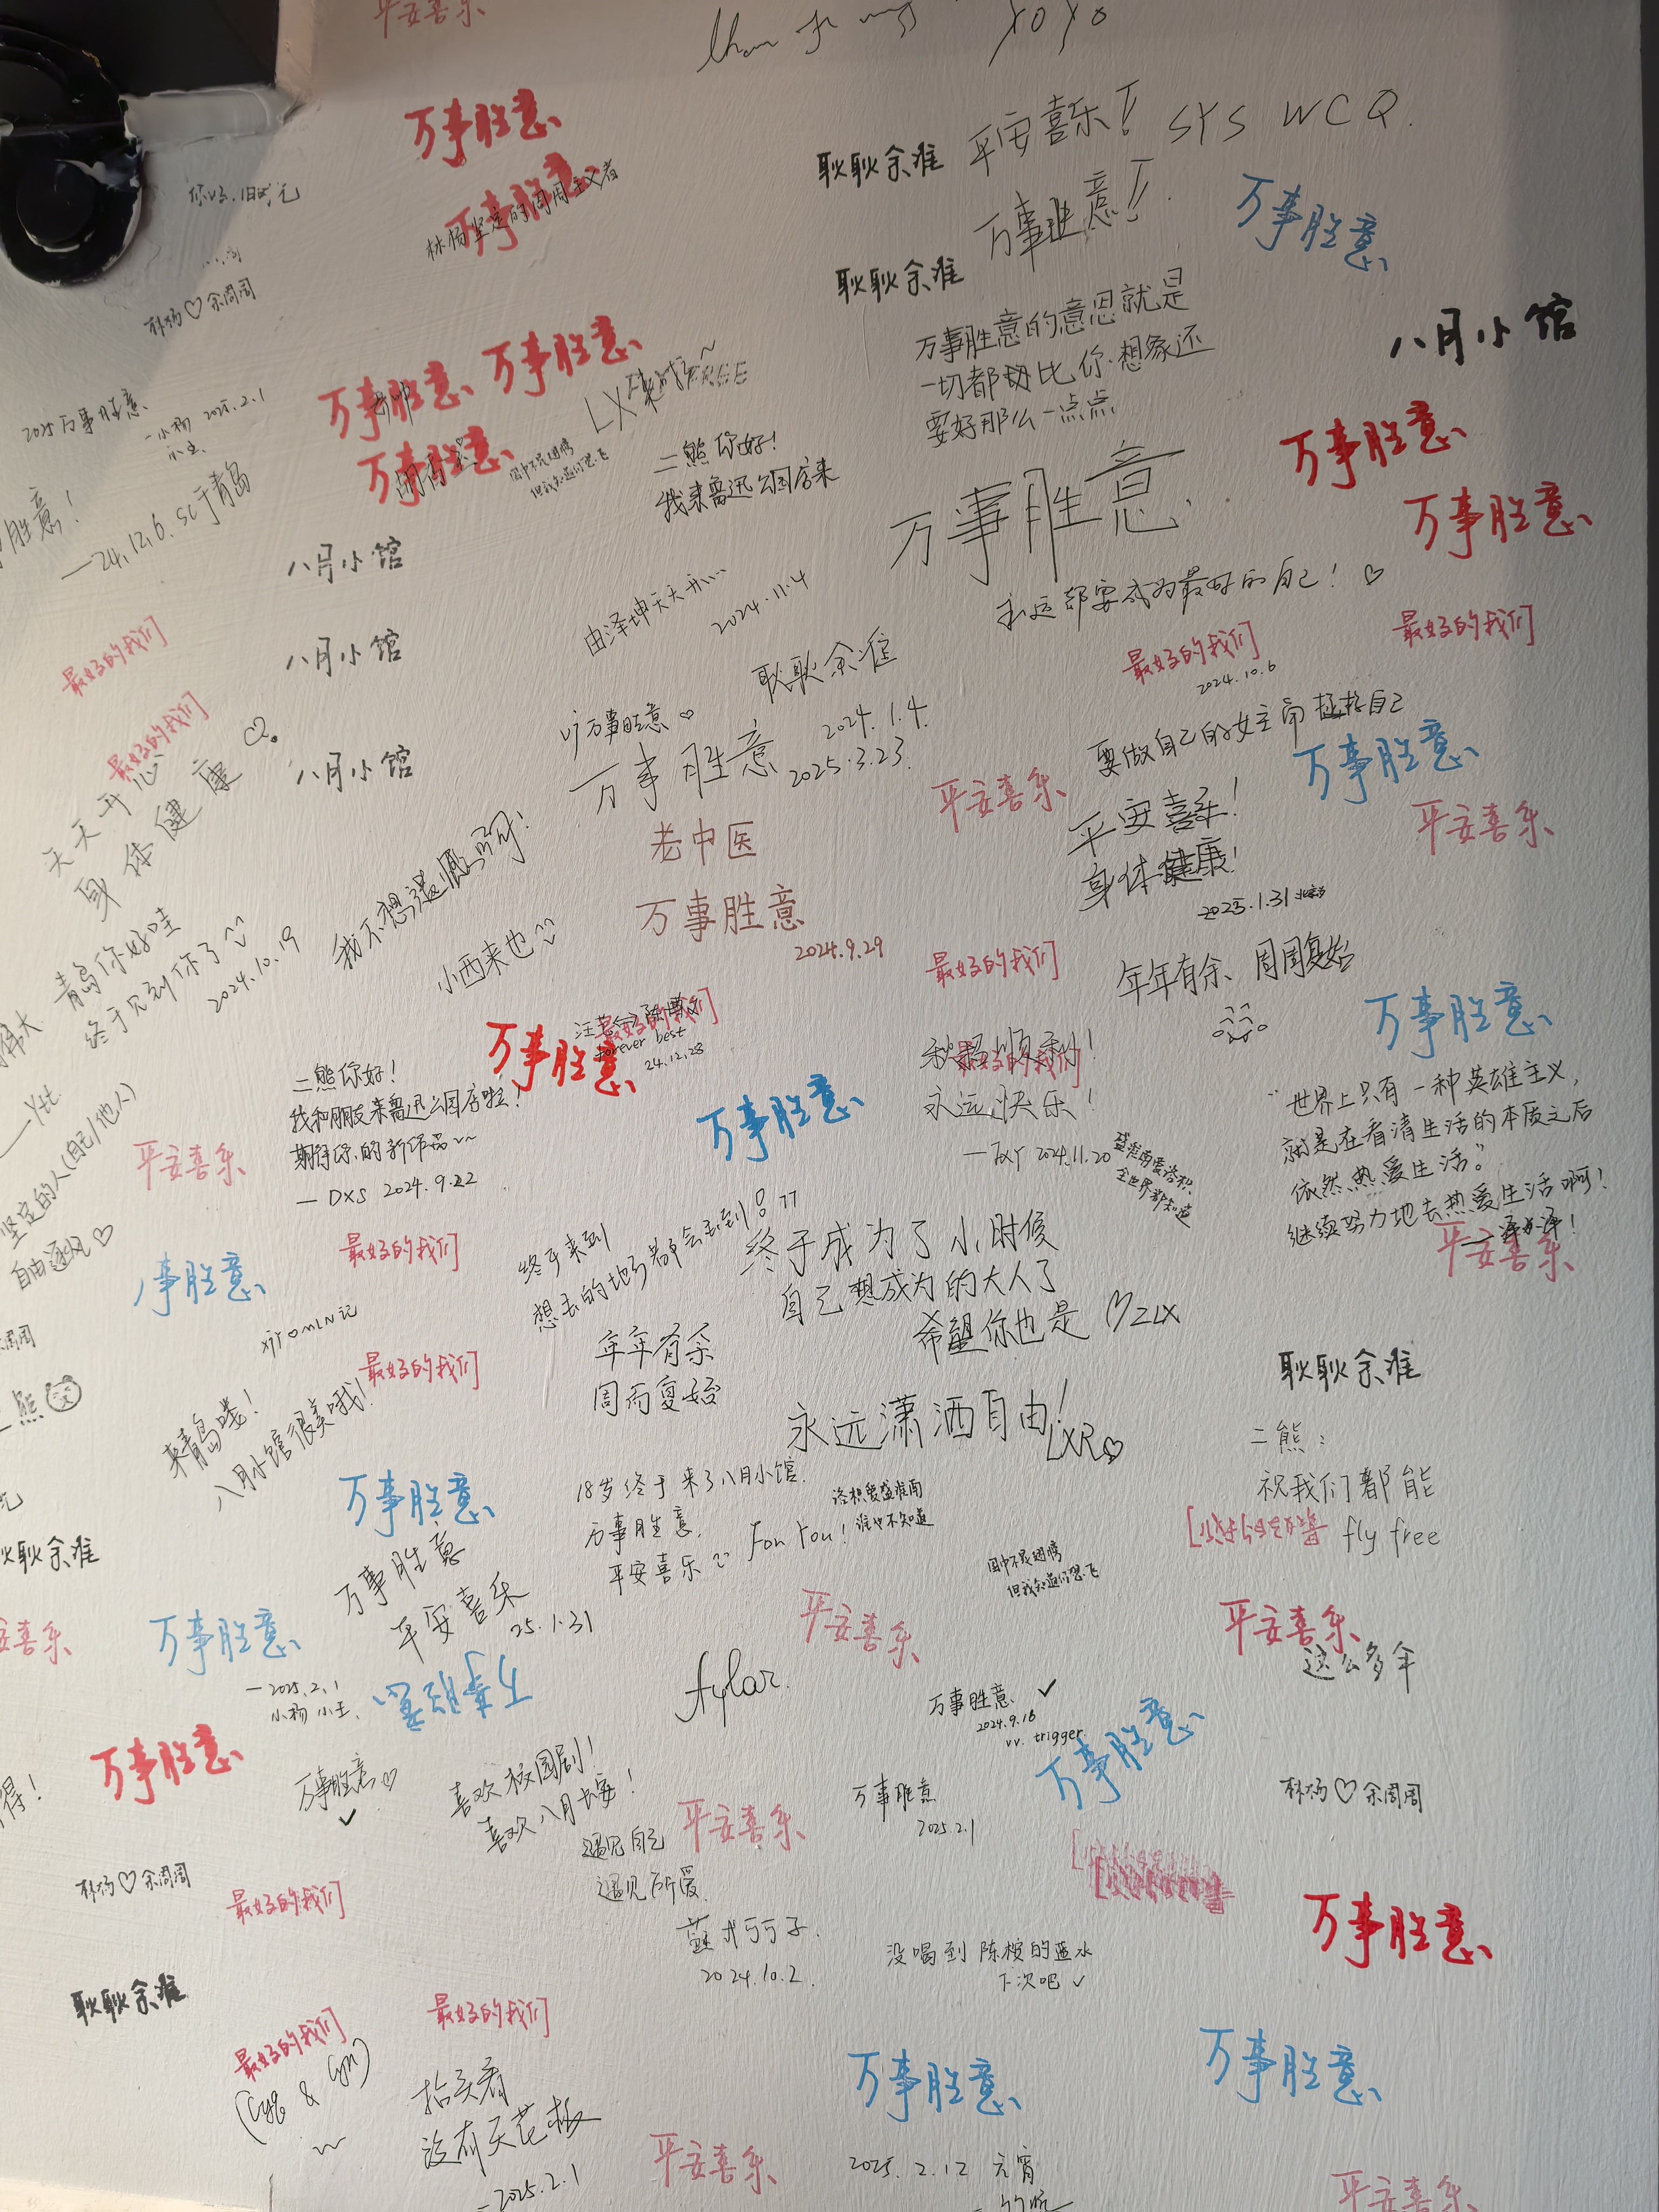 平安喜乐
xoxo
万事胜意
耿耿余淮
平安喜乐!
SYS WCQ.
万事胜意!
林杨坚定的周周主义者
万事胜意
万事胜意
耿耿余淮
林杨♡余周周
万事胜意的意思就是
一切都比你想象还
要好那么一点点
八月小馆
万事胜意
万事胜意
万事胜意
2025万事胜意
小杨 2025.2.1
小王
LX
FREE
二熊你好!
我来鲁迅公园店来
万事胜意
万事胜意
万事胜意
胜意!
—24.12.6. SC于青岛
八月小馆
永远都要成为最好的自己!♡
由泽坤天天开
2024.11.4
八月小馆
最好的我们
最好的我们
2024.10.6
最好的我们
耿耿余淮
最好的我们
万事胜意♡
万事胜意
2024.1.4.
2025.3.23.
要做自己的女主角拯救自己
万事胜意
八月小馆
天天开心
身体健康
平安喜乐
平安喜乐
平安喜乐!
身体健康!
2025.1.31
老中医
万事胜意
2024.9.29
小西来也
青岛你好哇
终于见到你了
2024.10.19
最好的我们
年年有余、周周复始
万事胜意
最好的我们
forever best
24.12.28
万事胜意
二熊你好!
我和朋友来鲁迅公园店啦!
期待你的新作品~~
— DXS 2024.9.22
万事胜意
最好的我们
永远快乐!
2024.11.20
盛淮南爱洛枳
全世界都知道
"世界上只有一种英雄主义,
就是在看清生活的本质之后
依然热爱生活。"
继续努力地去热爱生活啊!
平安喜乐
平安喜乐
坚定的人(自己/他人)
自由
事胜意
最好的我们
终于来到
想去的地方都会去到!
终于成为了小时候
自己想成为的大人了
希望你也是 ♡ZLX
年年有余
周而复始
最好的我们
来青岛喽!
八月小馆很美哦!
永远潇洒自由!
LXR♡
耿耿余淮
二熊:
祝我们都能
fly free
最好的我们
万事胜意
18岁终于来了八月小馆.
万事胜意.
平安喜乐
For You!
洛枳爱盛淮南
谁也不知道
耿余淮
万事胜意
平安喜乐
25.1.31
平安喜乐
平安喜乐
这么多年
喜乐
万事胜意
—2025.2.1
小杨 小王.
万事胜意
Aylar.
万事胜意 ✓
2024.9.16
vv. trigger.
万事胜意
万事胜意
万事胜意♡
✓
喜欢校园剧!
喜欢八月长安!
平安喜乐
万事胜意
2025.2.1
林杨♡余周周
遇见自己
遇见所爱.
林杨♡余周周
最好的我们
2024.10.2.
没喝到陈桉的蓝水
下次吧 ✓
万事胜意
耿耿余淮
最好的我们
最好的我们
抬头看
没有天花板
—2025.2.1
万事胜意
万事胜意
平安喜乐
2025.2.12 元宵
平安喜乐